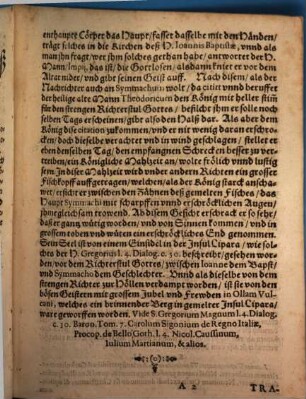 enthaupte Cörper das Häupt/fasset dasselbe mit den Händen/
trägt solches in die Kirchen deß H. Ioannis Baptistæ, vnnd als
man jhn fragt/wer jhm solches gethan habe/antwortet der H.
Mann/Impij, das ist/die Gottlosen/alsdann kniet er vor dem
Altar nider/vnd gibt seinen Geist auff. Nach disem/als der
Nachrichter auch an Symmachum wolt/da citirt vnnd berufft
der heilige alte Mann Theodoricum den König mit heller stim
für den strengen Richterstul Gottes/ befilcht jhm er soll noch
selben Tags erscheinen/gibt also den Halß dar. Als aber dem
König dise citation zukommen/vnd er nit wenig daran erschro-
cken/doch dieselbe verachtet vnd in wind geschlagen/stellet er
eben denselben Tag/den empfangnen Schrecken besser zu ver-
treiben/ein Königliche Mahlzeit an/wolte frölich vnnd lustig
sein. In diser Mahlzeit wird vnder andern Richten ein grosser
Fischkopff auffgetragen/welchen/als der König starck anscha-
wet/ersihet er zwischen den Zähnen deß gemelten Fisches/das
Haupt Symmachi mit scharpffen vnnd erschröcklichen Augen/
jhme gleichsam trowend. Ab disem Gesicht erschrack er so sehr/
das er gantz wütig worden/vnd von Sinnen kommen/vnd in
grossem toben vnd wüten ein erschröckliches End genommen.
Sein Seel ist von einem Einsidel in der Insul Cipara/wie sol-
ches der H. Gregorius l. 4. Dialog. c. 30. beschreibt/gesehen wor-
den/vor dem Richterstul Gottes/zwischen Ioann dem Bapst/
vnd Symmacho dem Geschlechter. Vnnd als dieselbe von dem
strengen Richter zur Höllen verdampt worden/ist sie von den
bösen Geistern mit grossem Jubel vnd Frewden in Ollam Vul-
cani, welches ein brinnender Berg in gemelter Insul Cipara/
ware geworffen worden. Vide S. Gregorium Magnum l. 4. Dialog.
c. 30. Baron. Tom. 7. Carolum Sigonium de Regno Italiæ,
Procop. de Bello Goth. l. 4. Nicol. Caussinum,
Iulium Martianum, & alios.
A 2 TRA-